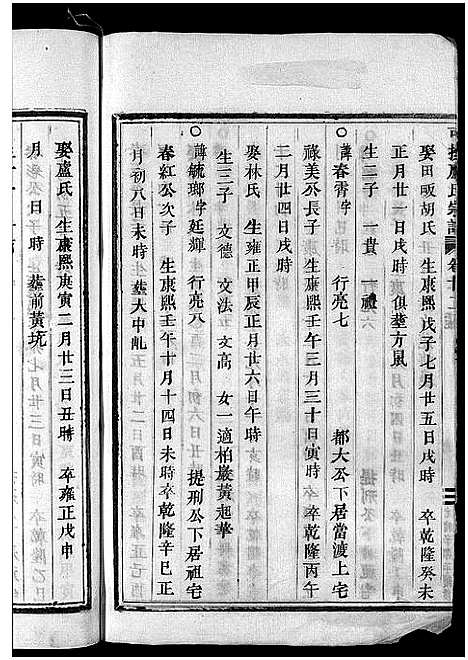 盧氏宗譜 卷十二
娶田畈胡氏 生康熙戊子七月廿五日戌時 卒乾隆癸未
正月廿一日戌時 俱塟方風
生二子 一貴 一禄
○諱春霄字 行亮七 都大公下居當渡上宅
祿美公長子 生康熙壬午三月三十日寅時 卒乾隆丙午
二月廿四日戌時
娶林氏 生雍正甲辰正月廿六日午時
生三子 文德 文法 文高 女一適柏巖黃起華
○諱毓瑯字廷輝 行亮八 提刑公下居祖宅
春紅公次子 生康熙壬午十月十四日未時 卒乾隆辛巳正
月初八日未時 塟大中乢
娶盧氏 生康熙庚寅二月廿三日丑時 卒雍正戊申
月 日時 塟前黃坑